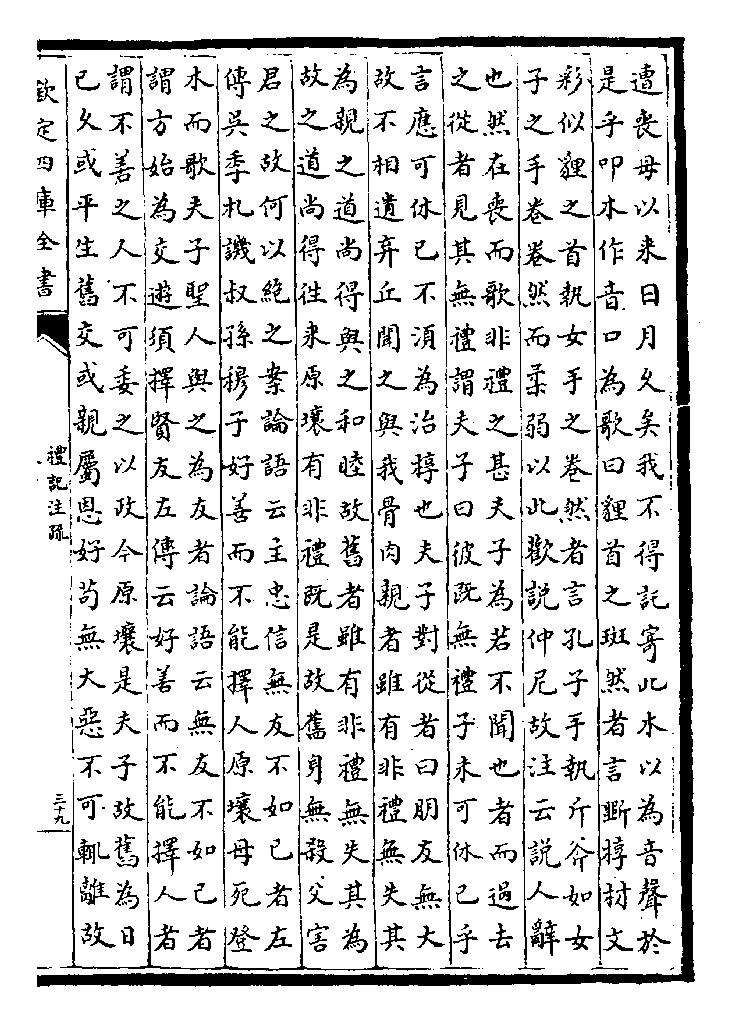 遭喪母以来日月久矣我不得託寄此木以為音聲於
是乎叩木作音口為歌曰貍首之斑然者言斵椁材文
彩似貍之首執女手之卷然者言孔子手執斤斧如女
子之手卷卷然而柔弱以此歡說仲尼故注云說人辭
也然在喪而歌非禮之甚夫子為若不聞也者而過去
之從者見其無禮謂夫子曰彼既無禮子未可休已乎
言應可休已不須為治椁也夫子對從者曰朋友無大
故不相遺弃丘聞之與我骨肉親者雖有非禮無失其
為親之道尚得與之和睦故舊者雖有非禮無失其為
故之道尚得徃来原壤有非禮既是故舊身無殺父害
君之故何以絶之案論語云主忠信無友不如已者左
傳吳季札譏叔孫穆子好善而不能擇人原壤母死登
木而歌夫子聖人與之為友者論語云無友不如已者
謂方始為交遊須擇賢友左傳云好善而不能擇人者
謂不善之人不可委之以政今原壤是夫子故舊為日
已久或平生舊交或親屬恩好苟無大惡不可輒離故
欽定四庫全書
禮記注疏
三十九